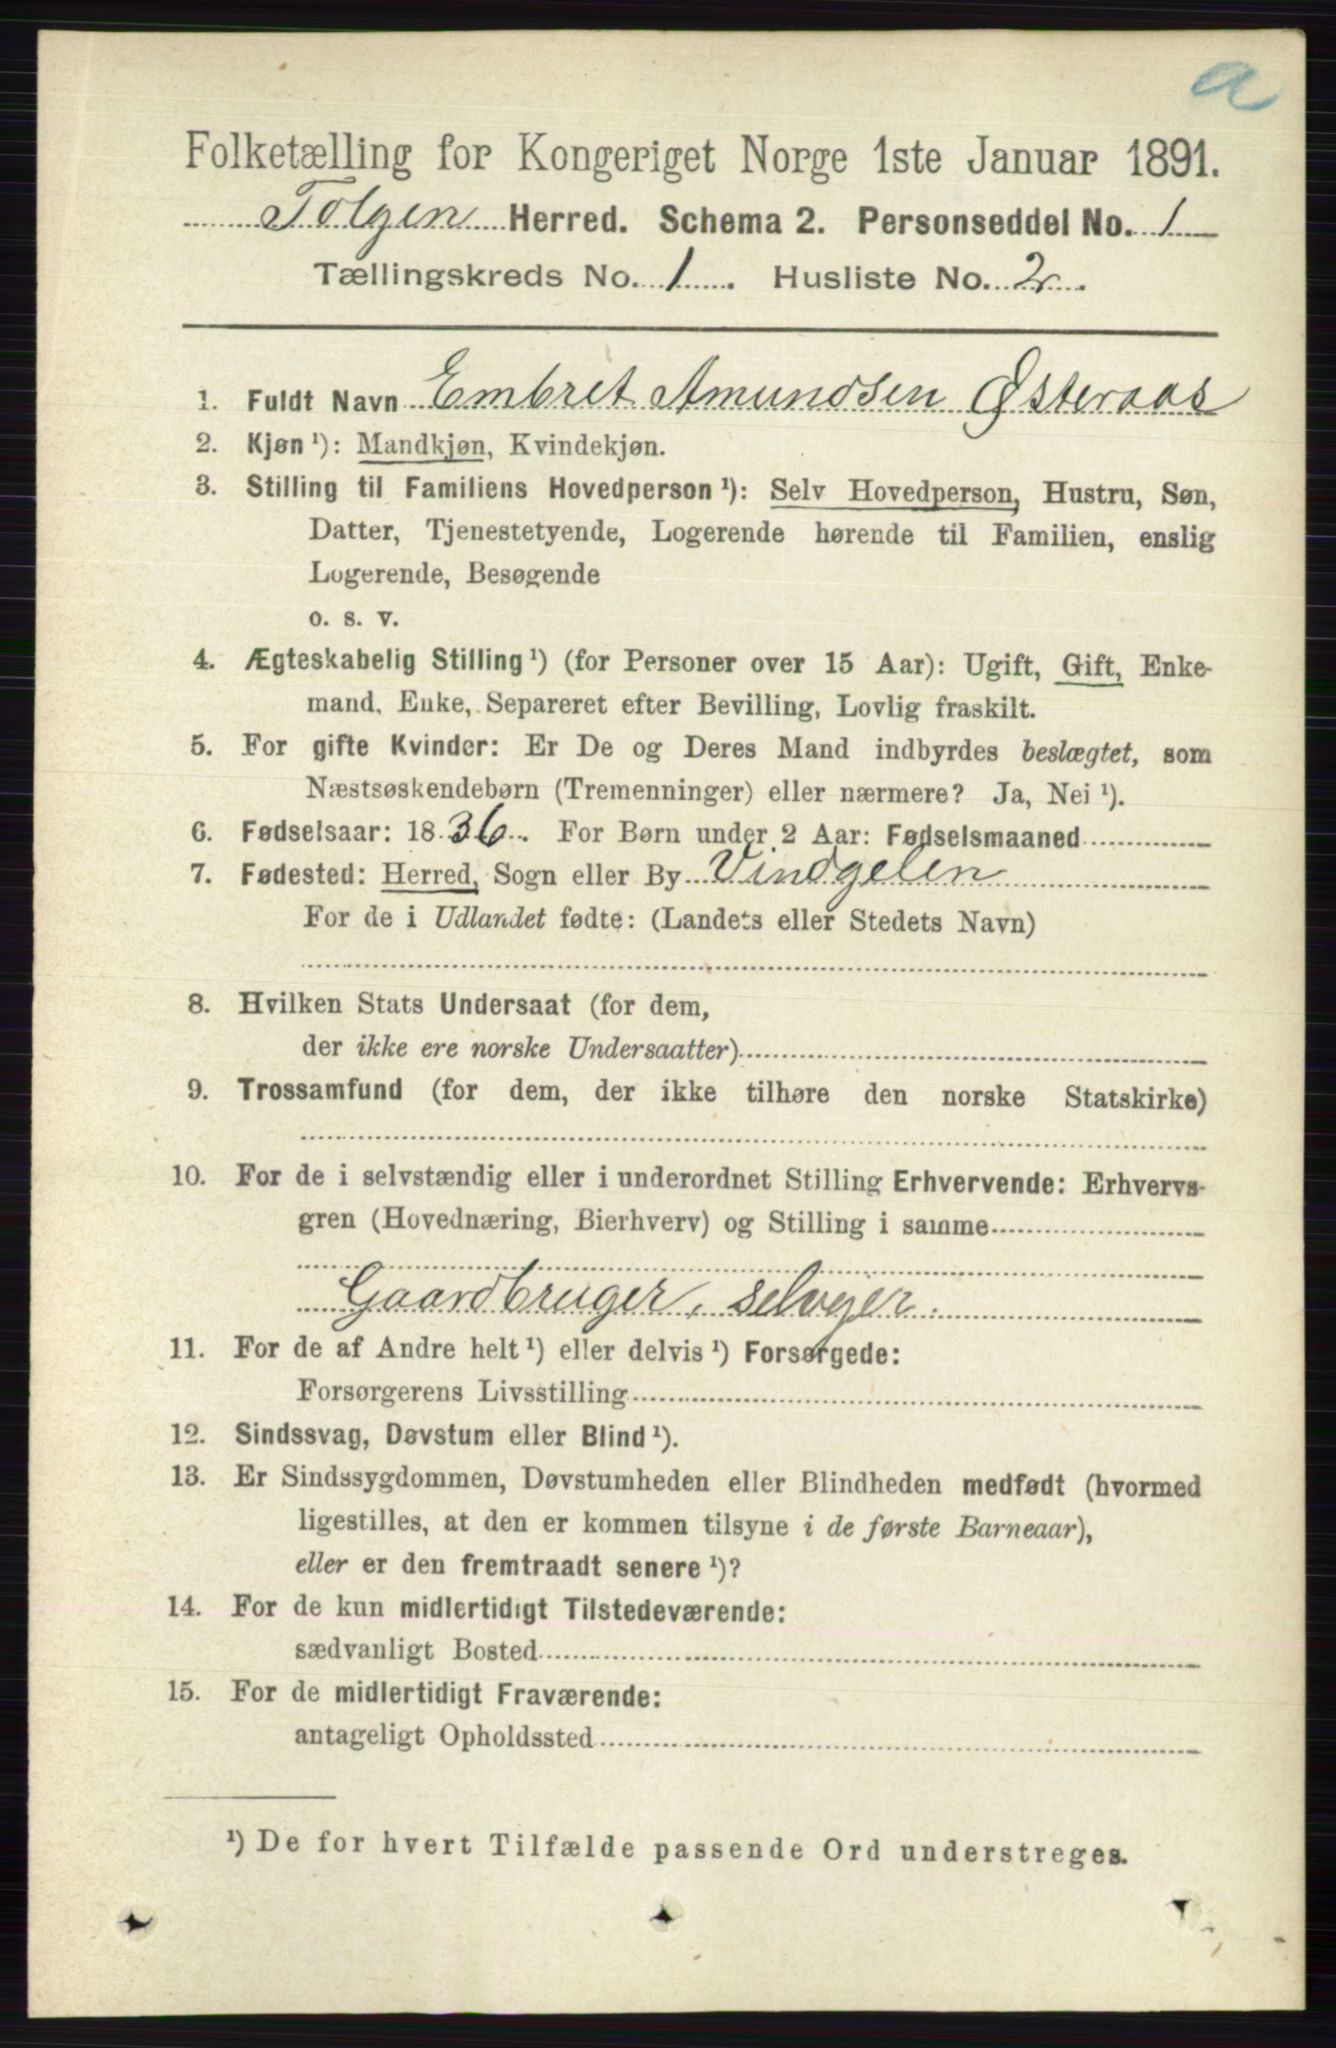 a
Folketælling for Kongeriget Norge 1ste Januar 1891.
Tolgen Herred. Schema 2. Personseddel No. 1
Tællingskreds No. 1. Husliste No. 2.
1. Fuldt Navn Embret Amundsen Østeraas
2. Kjøn ¹): Mandkjøn, Kvindekjøn.
3. Stilling til Familiens Hovedperson ¹): Selv Hovedperson, Hustru, Søn,
Datter, Tjenestetyende, Logerende hørende til Familien, enslig
Logerende, Besøgende
o. s. v.
4. Ægteskabelig Stilling ¹) (for Personer over 15 Aar): Ugift, Gift, Enke-
mand, Enke, Separeret efter Bevilling, Lovlig fraskilt.
5. For gifte Kvinder: Er De og Deres Mand indbyrdes beslægtet, som
Næstsøskendebørn (Tremenninger) eller nærmere? Ja, Nei ¹).
6. Fødselsaar: 1836. For Børn under 2 Aar: Fødselsmaaned
7. Fødested: Herred, Sogn eller By Vindgelen
For de i Udlandet fødte: (Landets eller Stedets Navn)
8. Hvilken Stats Undersaat (for dem,
der ikke ere norske Undersaatter)
9. Trossamfund (for dem, der ikke tilhøre den norske Statskirke)
10. For de i selvstændig eller i underordnet Stilling Erhvervende: Erhvervs-
gren (Hovednæring, Bierhverv) og Stilling i samme
Gaardbruger, selvejer.
11. For de af Andre helt ¹) eller delvis ¹) Forsørgede:
Forsørgerens Livsstilling
12. Sindssvag, Døvstum eller Blind ¹).
13. Er Sindssygdommen, Døvstumheden eller Blindheden medfødt (hvormed
ligestilles, at den er kommen tilsyne i de første Barneaar),
eller er den fremtraadt senere ¹)?
14. For de kun midlertidigt Tilstedeværende:
sædvanligt Bosted
15. For de midlertidigt Fraværende:
antageligt Opholdssted
¹) De for hvert Tilfælde passende Ord understreges.